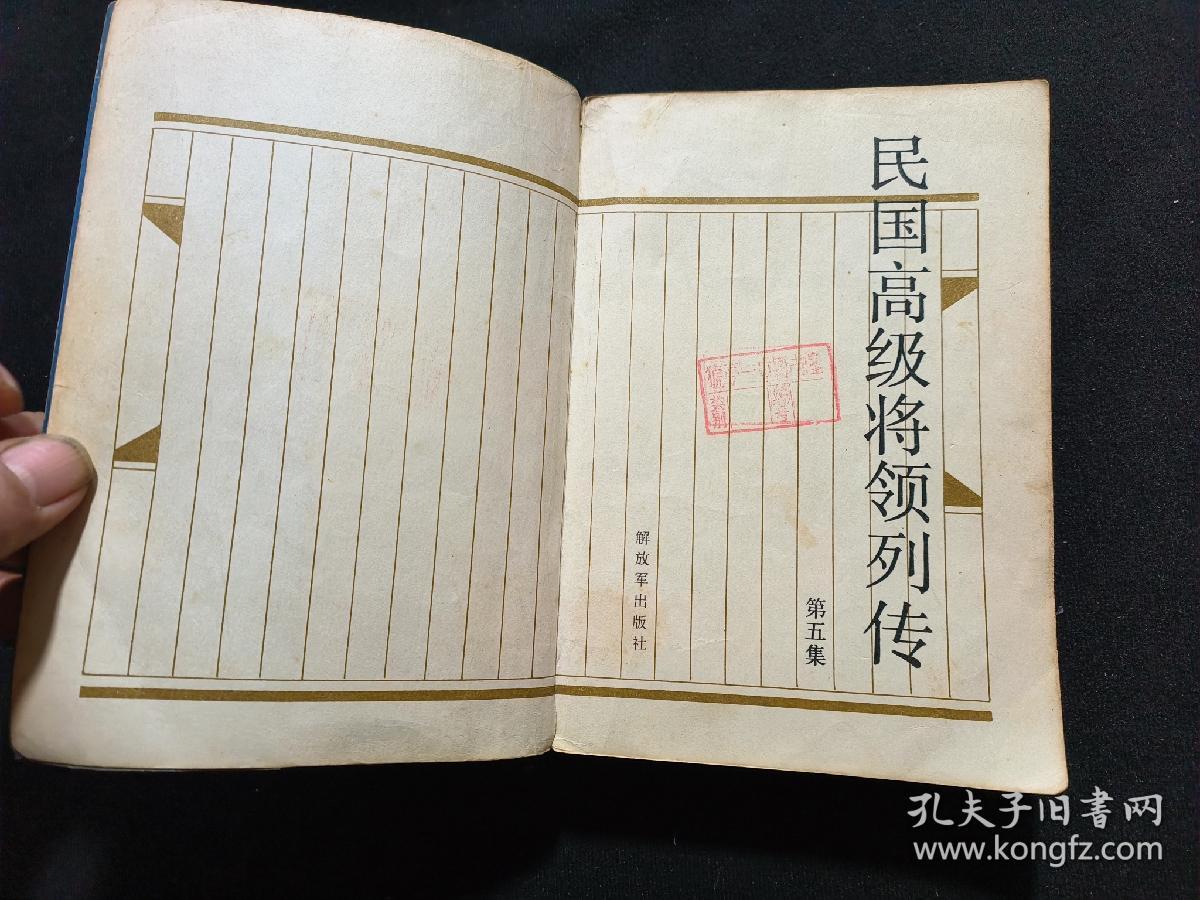 民国高级将领列传
第五集
解放军出版社
孔夫子旧書网
www.kongfz.com